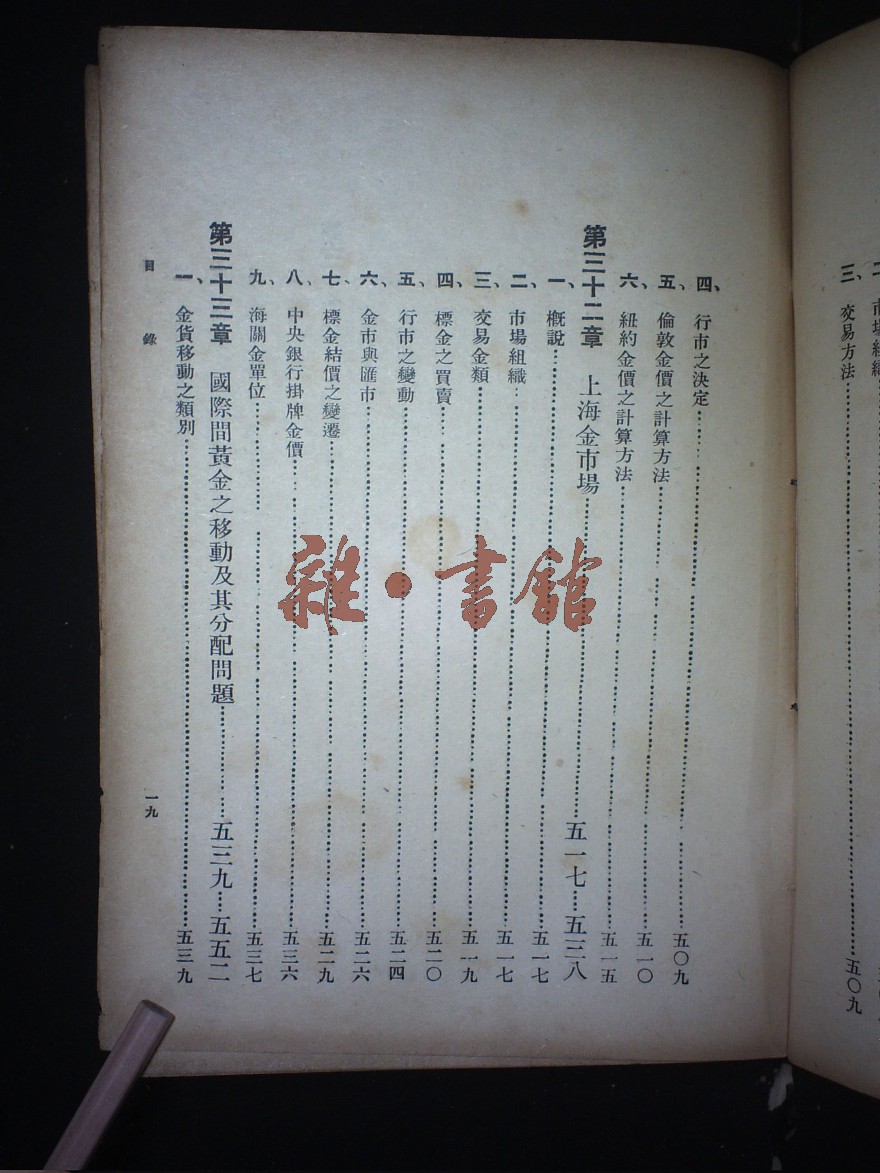 三、交易方法……五〇九
四、行市之決定……五〇九
五、倫敦金價之計算方法……五一〇
六、紐約金價之計算方法……五一五
第三十二章 上海金市場……五一七…五三八
一、概說……五一七
二、市場組織……五一七
三、交易金類……五一九
四、標金之買賣……五二〇
五、行市之變動……五二四
六、金市與匯市……五二六
七、標金結價之變遷……五二九
八、中央銀行掛牌金價……五三六
九、海關金單位……五三七
第三十三章 國際間黃金之移動及其分配問題……五三九…五五二
一、金貨移動之類別……五三九
目錄 一九
雜·書館